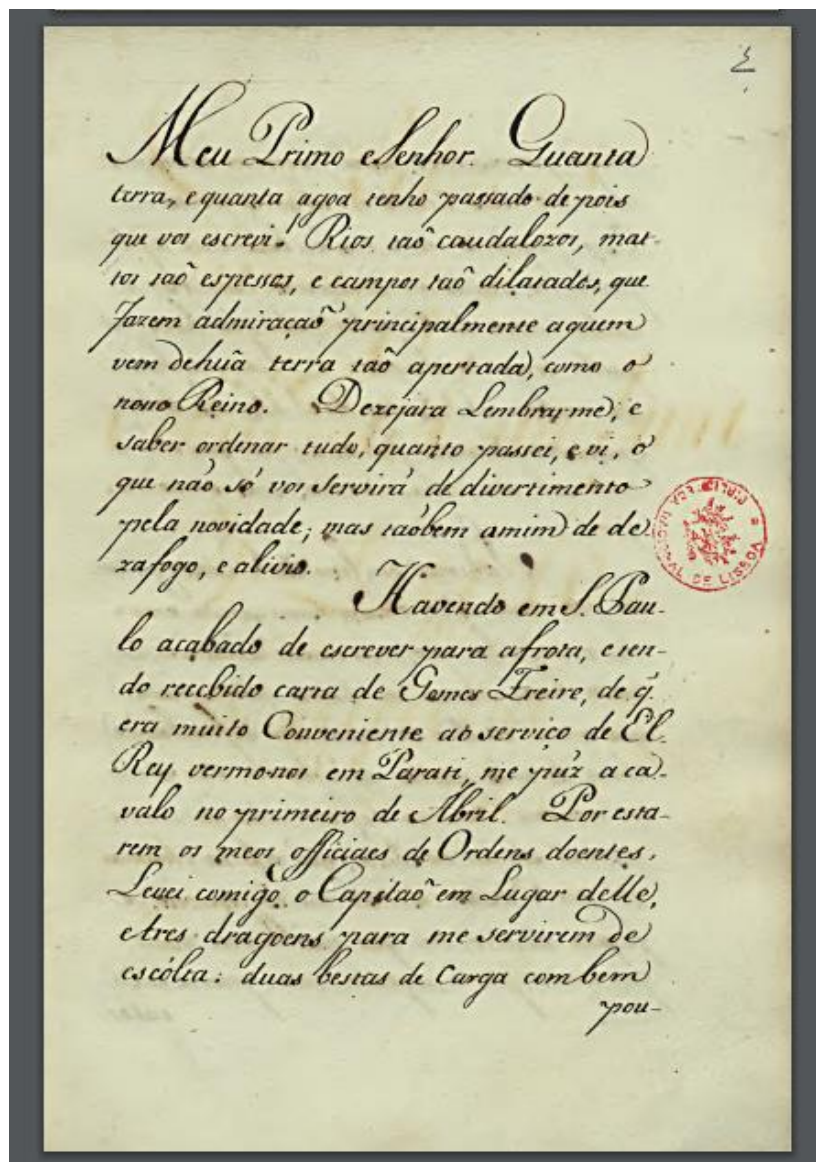 Meu Primo e Senhor. Quanta
terra, e quanta agoa tenho passado depois
que vos escrevi! Rios taõ caudalozos, mat-
tos taõ espessos, e campos taõ dilatados, que
fazem admiraçaõ principalmente aquem
vem dehuã terra taõ apertada, como o
nosso Reino. Dezejara Lembrarme, e
saber ordenar tudo, quanto passei, e vi, o
que não só vos servirá de divertimento
pela novidade; mas taõbem amim de de
zafogo, e alivio.
Havendo em S. Pau-
lo acabado de escrever para a frota, e ten-
do recebido carta de Gomes Freire, de q̃
era muito Conveniente ao serviço de El
Rey vermonos em Parati, me puz a ca-
valo no primeiro de Abril. Por esta-
rem os meos officiaes de Ordens doentes,
Levei comigo o Capitaõ em Lugar delle,
e tres dragoens para me servirem de
escólta: duas bestas de Carga com bem
pou-
BIBLIOTECA NACIONAL DE LISBOA